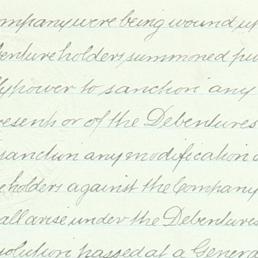 ompany were being wound up
enture holders summoned pur
y power to sanction any
resents or of the Debentures
sanction any modification o
holders against the Company
all arise under the Debentures
solution passed at a Genera